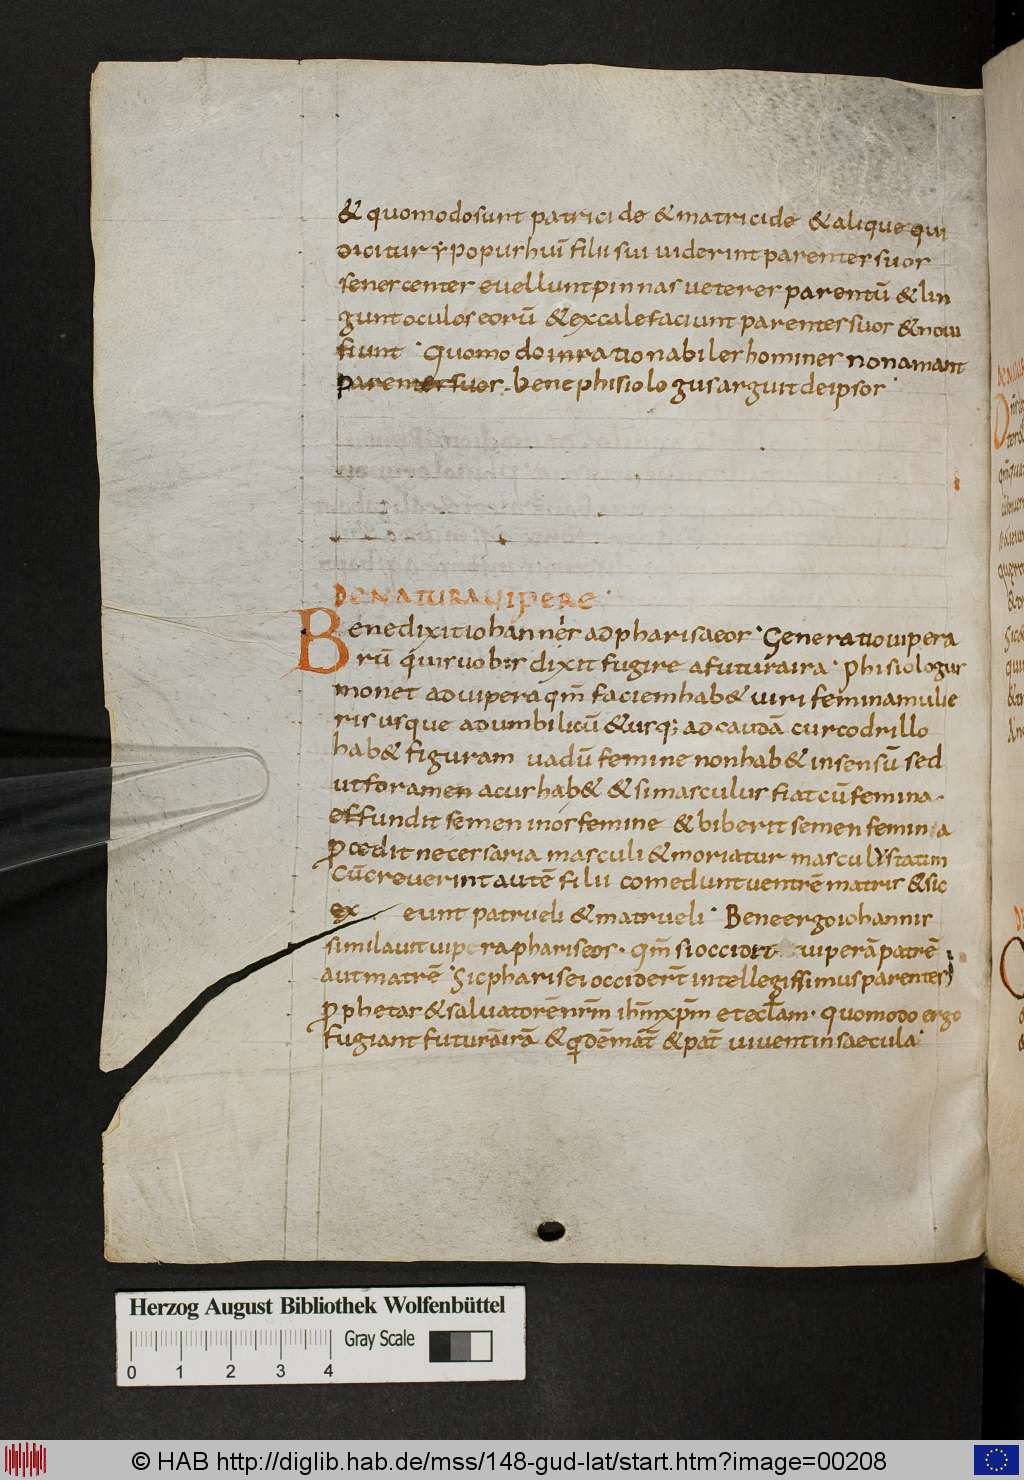 & quomodo sunt patricide & matricide & alique qui
dicitur ÿpopus huī filii sui uiderint parentes suos
senescentes euellunt pinnas ueteres parentū & lin
gunt oculos eorū & excalefaciunt parentes suos & noui
fiunt · Quomodo inrationabiles homines non amant
parentes suos . bene phisiologus arguit de ipsos ·
DE NATURA VIPERE ·
Bene dixit iohannes ad pharisaeos · Generatio uipera
rū quis uobis dixit fugire a futura ira · phisiologus
monet ad uipera qm̄ faciem hab& uiri femina mulie
ris usque ad umbilicū & usq; ad caudā curcodrillo
hab& figuram uadū femine non hab& in sensū sed
ut foramen acus hab& & si masculus fiat cū femina ·
effundit semen in os femine & biberit semen femina
p̄cedit necessaria masculi & moriatur masculus statim
Cū creuerint autē filii comedunt uentrē matris & sic
ex eunt patrueli & matrueli · Bene ergo iohannis
similauit uipera phariseos · qm̄ si occidit uiperā patrē
aut matrē · Sic pharisei occiderт̄ intellegissimus parentes
p̄phetas & saluatorē nrm̄ ihm̄ xpm̄ et eclam̄ · quomodo ergo
fugiant futurā irā & qidē māt & pat̄ uiuent in saecula ·
Herzog August Bibliothek Wolfenbüttel
Gray Scale
0 1 2 3 4
© HAB http://diglib.hab.de/mss/148-gud-lat/start.htm?image=00208